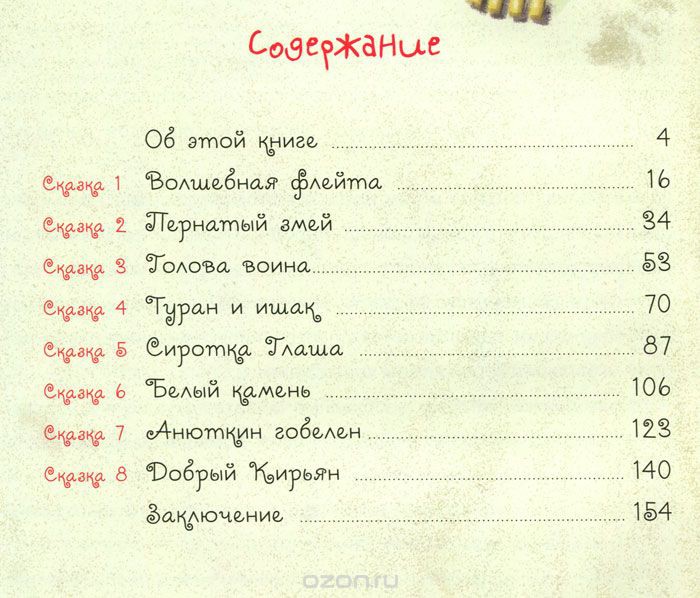 Содержание
Об этой книге 4
Сказка 1 Волшебная флейта 16
Сказка 2 Пернатый змей 34
Сказка 3 Голова воина 53
Сказка 4 Туран и ишак 70
Сказка 5 Сиротка Глаша 87
Сказка 6 Белый камень 106
Сказка 7 Анюткин гобелен 123
Сказка 8 Добрый Кирьян 140
Заключение 154
ozon.ru